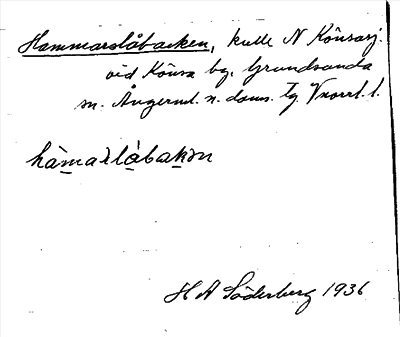 Hammarslåbacken, kulle N Könsasj.
vid Könsa by, Grundsunda
sn. Ångerml. n. doms. Tg Vnorrl. l.
hàmaslábakən
H A Söderberg 1936